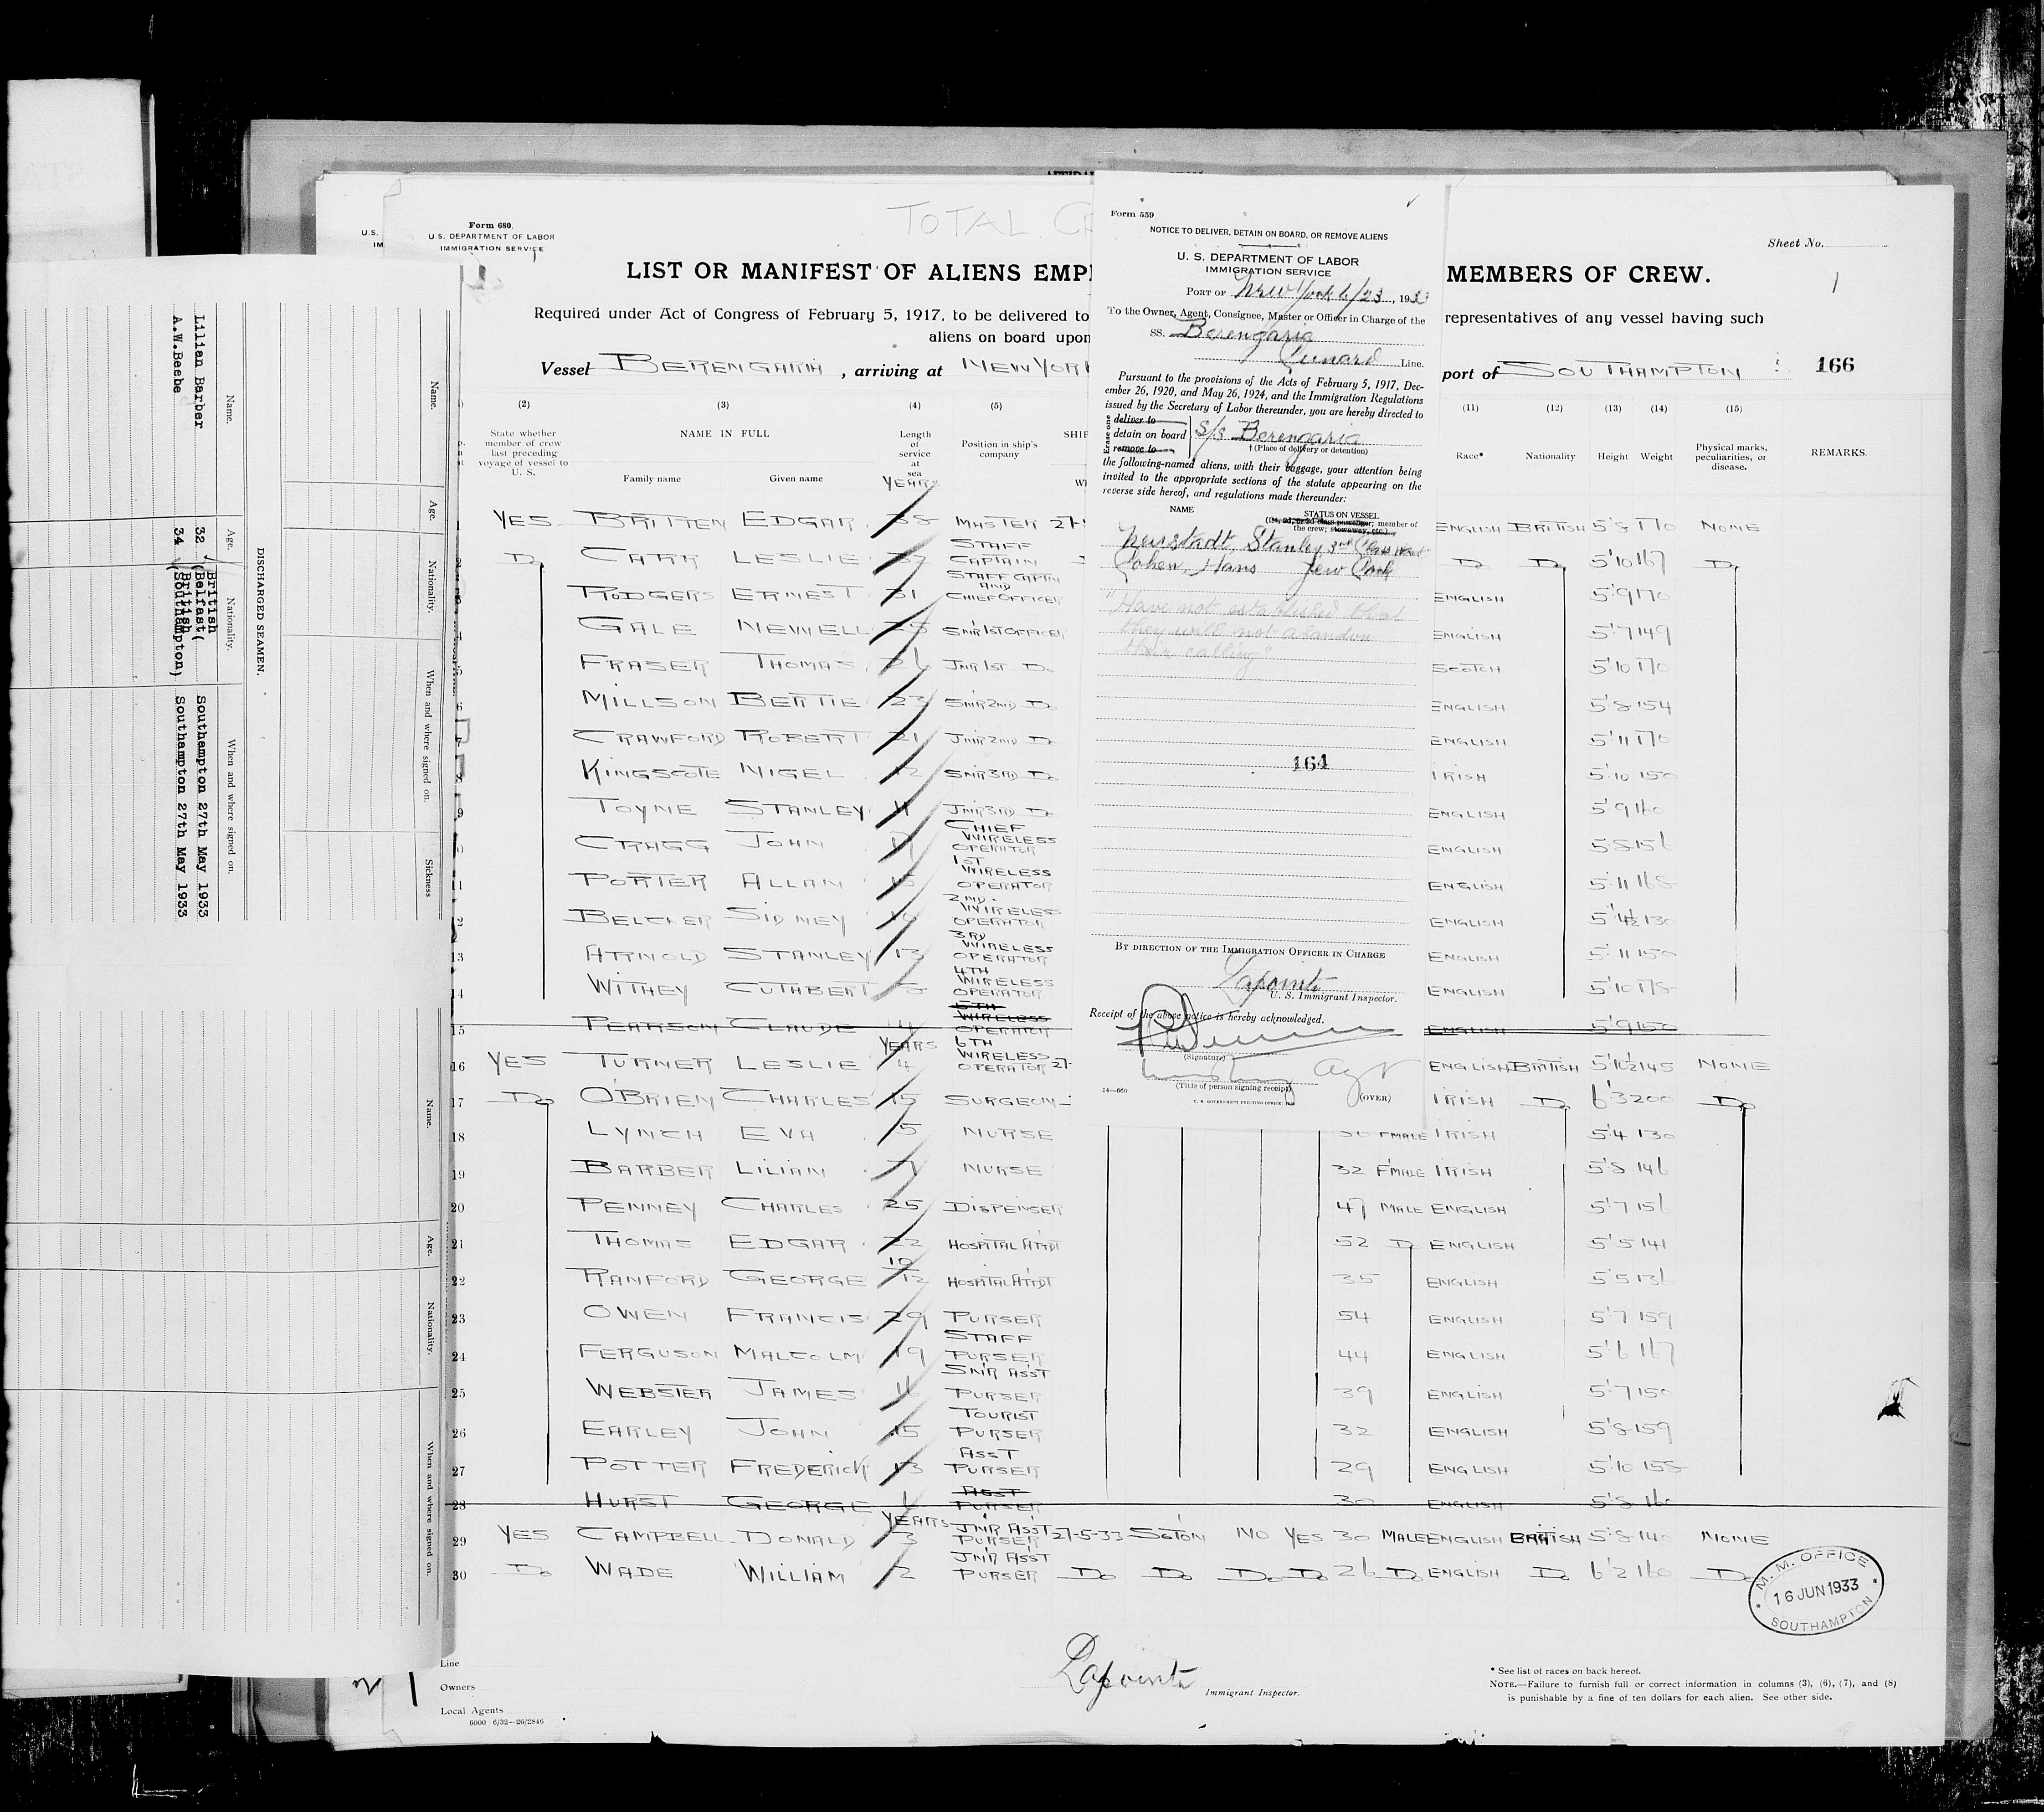 Form 680.
U. S. DEPARTMENT OF LABOR
IMMIGRATION SERVICE
U.S.
IM
TOTAL
Sheet No.
1
LIST OR MANIFEST OF ALIENS EMP
MEMBERS OF CREW.
Required under Act of Congress of February 5, 1917, to be delivered to
representatives of any vessel having such
aliens on board upon
Vessel BERENGARIA, arriving at NEW YORK
port of SOUTHAMPTON
166
(2) (3) (4) (5) (11) (12) (13) (14) (15)
State whether member of crew last preceding voyage of vessel to U. S.
NAME IN FULL
Family name Given name
Length of service at sea
YEARS
Position in ship's company
Race* Nationality Height Weight
Physical marks, peculiarities, or disease.
REMARKS.
1 YES BRITTEN EDGAR 38 MASTER 27- ENGLISH BRITISH 5'8 170 NONE
Do CARR LESLIE STAFF CAPTAIN Do Do 5'10 167 Do
RODGERS ERNEST 31 STAFF CAPTN AND CHIEF OFFICER ENGLISH 5'9 170
4 GALE NEWELL 25 SNR 1ST OFFICER ENGLISH 5'7 149
5 FRASER THOMAS 26 JNR 1ST Do SCOTCH 5'10 170
6 MILLSON BERTIE 23 SNR 2ND Do ENGLISH 5'8 154
7 CRAWFORD ROBERT 21 JNR 2ND Do ENGLISH 5'11 170
KINGSCOTE NIGEL 12 SNR 3RD Do IRISH 5'10 150
9 TOYNE STANLEY 11 JNR 3RD Do ENGLISH 5'9 160
CRAGG JOHN CHIEF WIRELESS OPERATOR ENGLISH 5'8 156
11 PORTER ALLAN 15 1ST WIRELESS OPERATOR ENGLISH 5'11 168
12 BELCHER SIDNEY 2ND WIRELESS OPERATOR ENGLISH 5'4½ 130
13 ARNOLD STANLEY 13 3RD WIRELESS OPERATOR ENGLISH 5'11 150
14 WITHEY CUTHBERT 4TH WIRELESS OPERATOR ENGLISH 5'10 178
15 PEARSON CLAUDE 4 5TH WIRELESS OPERATOR ENGLISH 5'9 150
YEARS
16 YES TURNER LESLIE 4 6TH WIRELESS OPERATOR 27- ENGLISH BRITISH 5'10½ 145 NONE
17 Do O'BRIEN CHARLES 15 SURGEON IRISH Do 6'3 200 Do
18 LYNCH EVA 5 NURSE F'MALE IRISH 5'4 130
19 BARBER LILIAN NURSE 32 F'MALE IRISH 5'8 146
20 PENNEY CHARLES 25 DISPENSER 47 MALE ENGLISH 5'7 156
21 THOMAS EDGAR 22 HOSPITAL ATTDT 52 Do ENGLISH 5'5 141
22 RANFORD GEORGE 10/12 HOSPITAL ATTDT 35 ENGLISH 5'5 136
23 OWEN FRANCIS 29 PURSER 54 ENGLISH 5'7 159
24 FERGUSON MALCOLM 19 STAFF PURSER 44 ENGLISH 5'6 167
25 WEBSTER JAMES 16 SNR ASST PURSER 39 ENGLISH 5'7 150
26 EARLEY JOHN 15 TOURIST PURSER 32 ENGLISH 5'8 159
27 POTTER FREDERICK 13 ASST PURSER 29 ENGLISH 5'10 158
28 HURST GEORGE 6 ASST PURSER 30 ENGLISH 5'8
YEARS
29 YES CAMPBELL DONALD 3 JNR ASST PURSER 27-5-33 S'TON NO YES 30 MALE ENGLISH BRITISH 5'8 140 NONE
30 Do WADE WILLIAM 2 JNR ASST PURSER Do Do Do Do 26 Do ENGLISH Do 6'2 160 Do
M. M. OFFICE
16 JUN 1933
SOUTHAMPTON
Line
Owners
Local Agents
6000 6/32—26/2846
Lapointe
Immigrant Inspector.
* See list of races on back hereof.
NOTE.—Failure to furnish full or correct information in columns (3), (6), (7), and (8)
is punishable by a fine of ten dollars for each alien. See other side.
Form 559
NOTICE TO DELIVER, DETAIN ON BOARD, OR REMOVE ALIENS
U. S. DEPARTMENT OF LABOR
IMMIGRATION SERVICE
PORT OF New York 6/23, 1933
To the Owner, Agent, Consignee, Master or Officer in Charge of the
SS. Berengaria
Cunard Line.
Pursuant to the provisions of the Acts of February 5, 1917, Dec-
ember 26, 1920, and May 26, 1924, and the Immigration Regulations
issued by the Secretary of Labor thereunder, you are hereby directed to
Erase one
deliver to
detain on board S/S Berengaria
remove to
† (Place of delivery or detention)
the following-named aliens, with their baggage, your attention being
invited to the appropriate sections of the statute appearing on the
reverse side hereof, and regulations made thereunder:
NAME
STATUS ON VESSEL
(1st, 2d, or 3d class passenger; member of
the crew; stowaway, etc.)
Neustadt, Stanley 3rd Class Wait
Cohen, Hans Jew Cook
"Have not established that
they will not abandon
their calling"
164
BY DIRECTION OF THE IMMIGRATION OFFICER IN CHARGE
Lapointe
U. S. Immigrant Inspector.
Receipt of the above notice is hereby acknowledged.
(Signature)
Agt
(Title of person signing receipt)
14—660
U. S. GOVERNMENT PRINTING OFFICE
(OVER)
DISCHARGED SEAMEN.
Name. Age. Nationality. When and where signed on.
Lilian Barber 32 British (Belfast( Southampton 27th May 1933
A.W.Beebe 34 British (Southampton) Southampton 27th May 1933
Name. Age. Nationality. When and where signed on. Sickness
Name. Age. Nationality. When and where signed on.